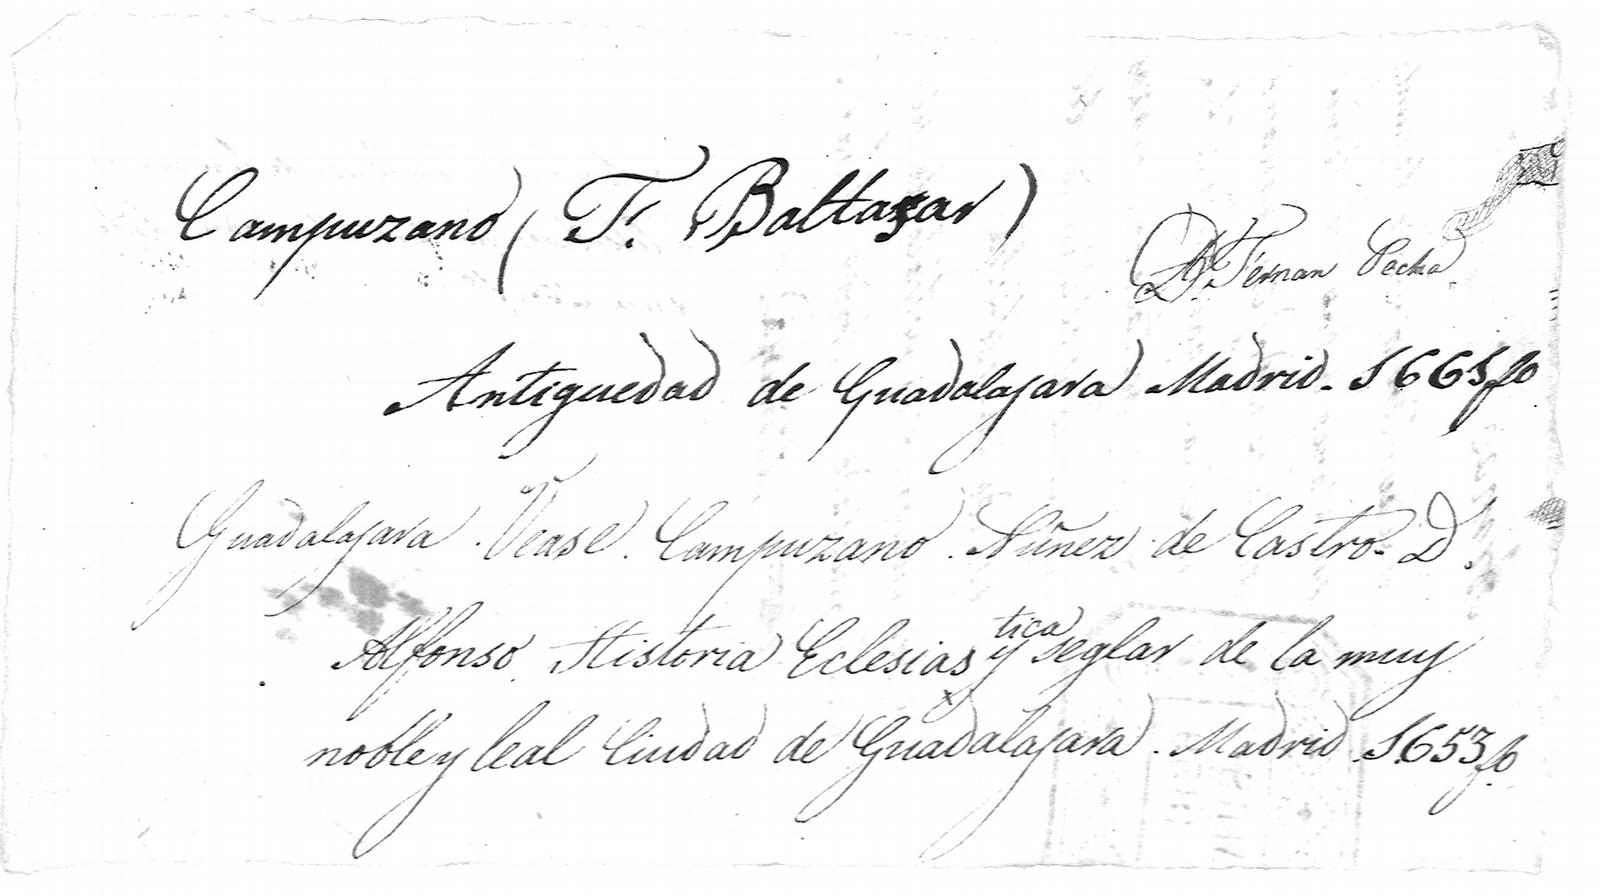 Campuzano (F. Baltazar)
D. Fernan Pecha
Antiguedad de Guadalajara Madrid. 1661 fo
Guadalajara. Vease. Campuzano. Nuñez de Castro. D.
Alfonso. Historia Eclesiastica y seglar de la muy
noble y leal Ciudad de Guadalajara. Madrid. 1653 fo